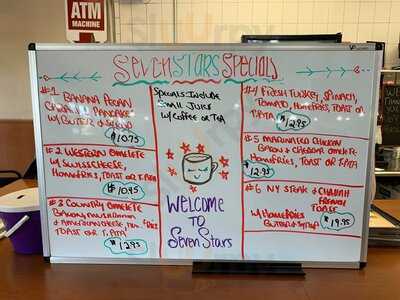 ATM
MACHINE
SEVEN STARS SPECIALS
#1 BANANA PECAN
PANCAKE
W/ BUTTER & SYRUP
$10.75
#2 WESTERN OMELETTE
W/ SWISS CHEESE,
HOMEFRIES, TOAST OR T.PATA
$10.95
#3 COUNTRY OMELETTE
BACON, MUSHROOM
& AMERICAN CHEESE,
TOAST OR T.PATA
$12.95
SPECIALS INCLUDE
SMALL JUICE
W/ COFFEE OR TEA
WELCOME
TO
SEVEN STARS
FRESH TURKEY, SPINACH,
TOMATO, HOMEFRIES, TOAST OR
T.PATA
$12.95
#5 MARINATED CHICKEN
BACON & CHEDDAR OMELETTE
HOMEFRIES, TOAST OR T.PATA
$12.95
#6 NY STEAK & CHALLAH
FRENCH
TOAST
W/ HOMEFRIES
BUTTER & SYRUP
$19.95